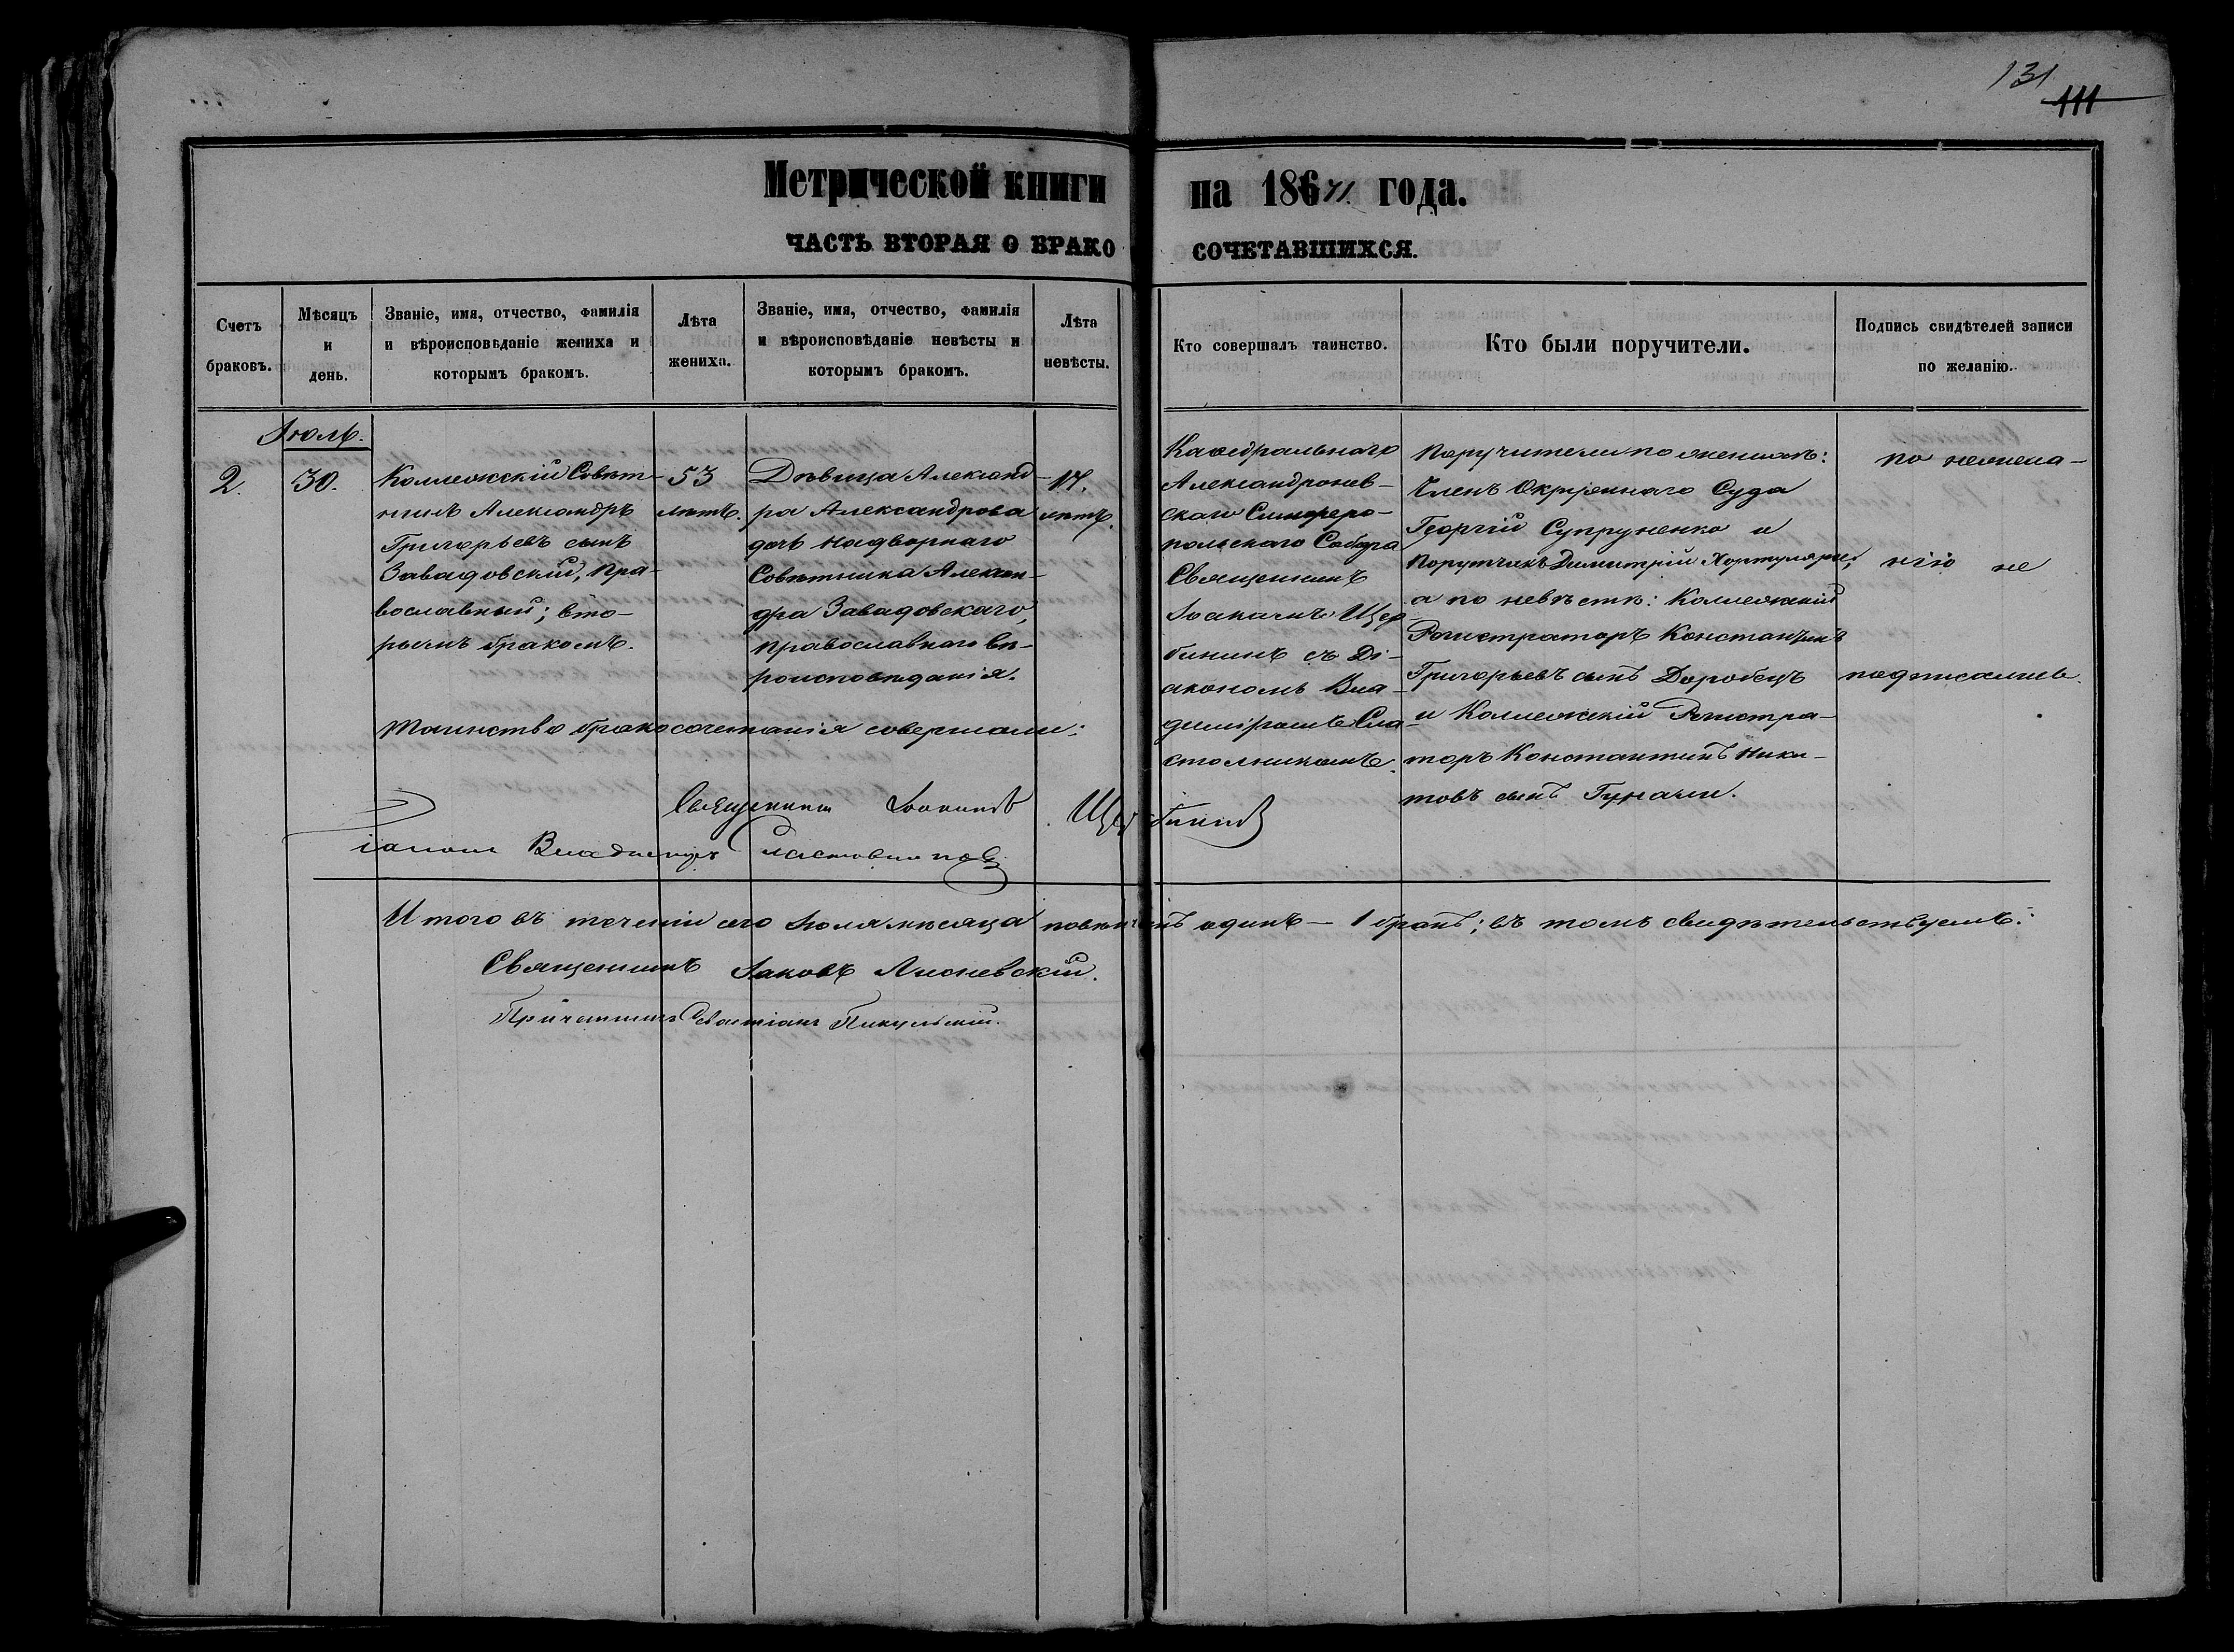 131
111
Метрической книги на 1871 года.
ЧАСТЬ ВТОРАЯ О БРАКОСОЧЕТАВШИХСЯ.
Счетъ браковъ.
Мѣсяцъ и день.
Званіе, имя, отчество, фамилія
и вѣроисповѣданіе жениха и
которымъ бракомъ.
Лѣта
жениха.
Званіе, имя, отчество, фамилія
и вѣроисповѣданіе невѣсты и
которымъ бракомъ.
Лѣта
невѣсты.
Кто совершалъ таинство.
Кто были поручители.
Подпись свидѣтелей записи
по желанію.
Іюль.
2.
30.
Коллежскій Совѣт-
никъ Александръ
Григорьевъ сынъ
Завадовскій, пра-
вославный; вто-
рымъ бракомъ.
53
лѣтъ.
Дѣвица Александ-
ра Александрова
дочь Надворнаго
Совѣтника Алексан-
дра Завадовскаго,
православнаго вѣ-
роисповѣданія.
17.
лѣтъ.
Каѳедральнаго
Александронев-
скаго Симферо-
польскаго Собора
Священникъ
Іоакимъ Щер-
бининъ съ Ді-
акономъ Вла-
димiромъ Сла-
столниковъ.
Поручители по женихѣ:
Членъ Окружнаго Суда
Георгій Супруненко и
Поручикъ Димитрій
а по невѣстѣ: Коллежскій
Регистраторъ Константинъ
Григорьевъ сынъ Доробецъ
и Коллежскій Регистра-
торъ Константинъ Ники-
товъ сынъ Гунали.
по нежела-
нію не
подписались.
Таинство бракосочетанія совершали:
Священникъ Іоакимъ Щербининъ
Діаконъ Владиміръ
Итого въ теченіи сего Іюля мѣсяца повѣнчанъ одинъ — 1 бракъ; въ томъ свидѣтельствуемъ:
Священникъ Іаковъ Лионевскій.
Причетникъ Севастіанъ Пикульскій.